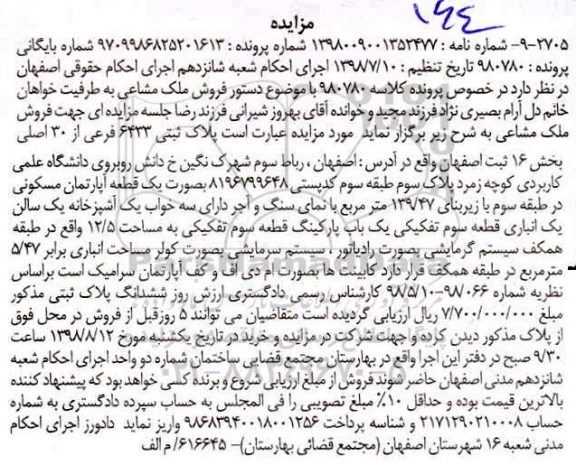 ۱۶۴
مزایده
۲۷۰۵-۹- شماره نامه : ۱۳۹۸۰۰۹۰۰۱۳۵۲۴۷۷ شماره پرونده : ۹۷۰۹۹۸۶۸۲۵۲۰۱۶۱۳ شماره بایگانی
پرونده : ۹۸۰۷۸۰ تاریخ تنظیم : ۱۳۹۸/۷/۱۰ اجرای احکام شعبه شانزدهم اجرای احکام حقوقی اصفهان
در نظر دارد در خصوص پرونده کلاسه ۹۸۰۷۸۰ با موضوع دستور فروش ملک مشاعی به طرفیت خواهان
خانم دل آرام بصیری نژاد فرزند مجید و خوانده آقای بهروز شیرانی فرزند رضا جلسه مزایده ای جهت فروش
ملک مشاعی به شرح زیر برگزار نماید مورد مزایده عبارت است پلاک ثبتی ۶۴۳۳ فرعی از ۳۰ اصلی
بخش ۱۶ ثبت اصفهان واقع در آدرس : اصفهان ، رباط سوم شهرک نگین خ دانش روبروی دانشگاه علمی
کاربردی کوچه زمرد پلاک سوم طبقه سوم کدپستی ۸۱۹۶۷۹۹۶۴۸ بصورت یک قطعه آپارتمان مسکونی
در طبقه سوم با زیربنای ۱۳۹/۴۷ متر مربع با نمای سنگ و آجر دارای سه خواب یک آشپزخانه یک سالن
یک انباری قطعه سوم تفکیکی یک باب پارکینگ قطعه سوم تفکیکی به مساحت ۱۲/۵ واقع در طبقه
همکف سیستم گرمایشی بصورت رادیاتور ، سیستم سرمایشی بصورت کولر مساحت انباری برابر ۵/۴۷
مترمربع در طبقه همکف قرار دارد کابینت ها بصورت ام دی اف و کف آپارتمان سرامیک است براساس
نظریه شماره ۹۸/۰۶۶-۹۸/۵/۱۰ کارشناس رسمی دادگستری ارزش روز ششدانگ پلاک ثبتی مذکور
مبلغ ۷/۷۰۰/۰۰۰/۰۰۰ ریال ارزیابی گردیده است متقاضیان می توانند ۵ روز قبل از فروش در محل فوق
از پلاک مذکور دیدن کرده و جهت شرکت در مزایده و خرید در تاریخ یکشنبه مورخ ۱۳۹۸/۸/۱۲ ساعت
۹/۳۰ صبح در دفتر این اجرا واقع در بهارستان مجتمع قضایی ساختمان شماره دو واحد اجرای احکام شعبه
شانزدهم مدنی اصفهان حاضر شوند فروش از مبلغ ارزیابی شروع و برنده کسی خواهد بود که پیشنهاد کننده
بالاترین قیمت بوده و حداقل ۱۰٪ مبلغ تصویبی را فی المجلس به حساب سپرده دادگستری به شماره
حساب ۲۱۷۱۲۹۰۲۱۰۰۰۸ و شناسه پرداخت ۹۸۶۸۳۹۴۰۰۱۸۰۰۱۲۵۶ واریز نماید دادورز اجرای احکام
مدنی شعبه ۱۶ شهرستان اصفهان (مجتمع قضائی بهارستان)- ۶۱۶۶۴۵/ م الف